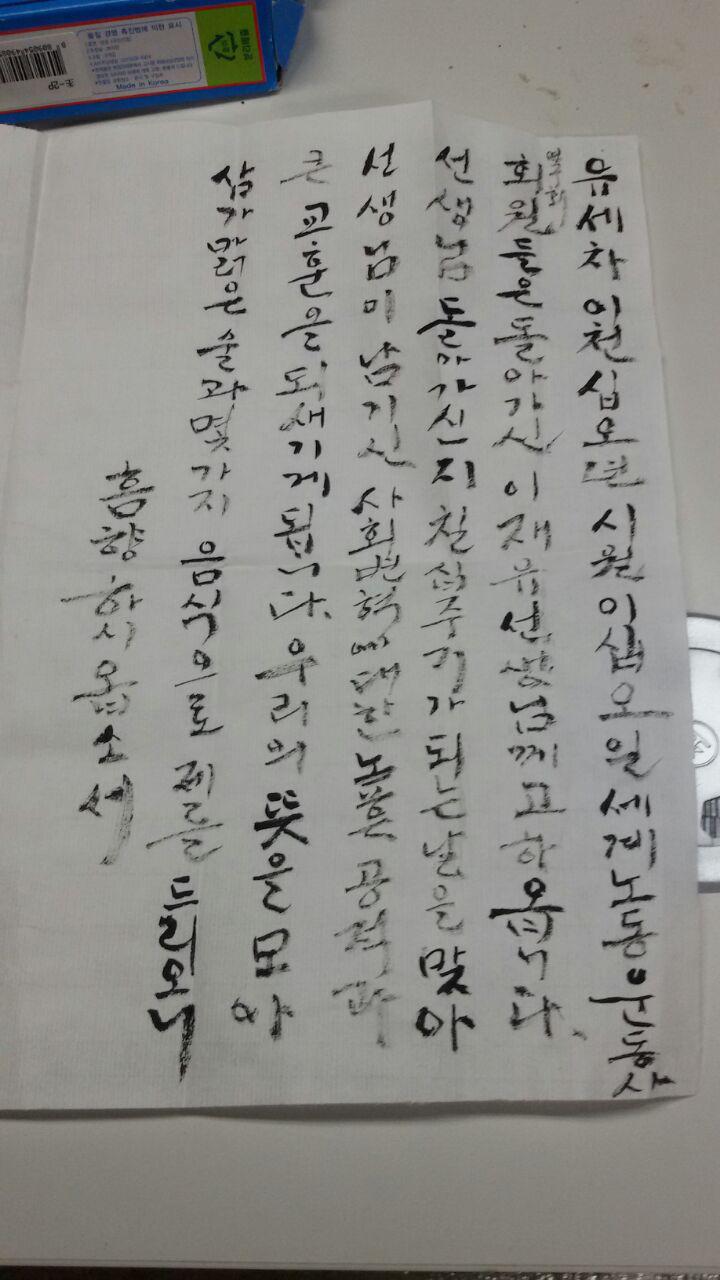 유세차 이천십오년 시월 이십오일 세계노동운동사
연구회
회원들은 돌아가신 이재유 선생님께 고하옵니다.
선생님 돌아가신지 칠십주기가 되는 날을 맞아
선생님이 남기신 사회변혁에 대한 높은 공적과
큰 교훈을 되새기게 됩니다. 우리의 뜻을 모아
삼가 맑은 술과 몇가지 음식으로 제를 드리오니
흠향하시옵소서
품질 경영 촉진법에 의한 표시
Made in Korea
초-2P